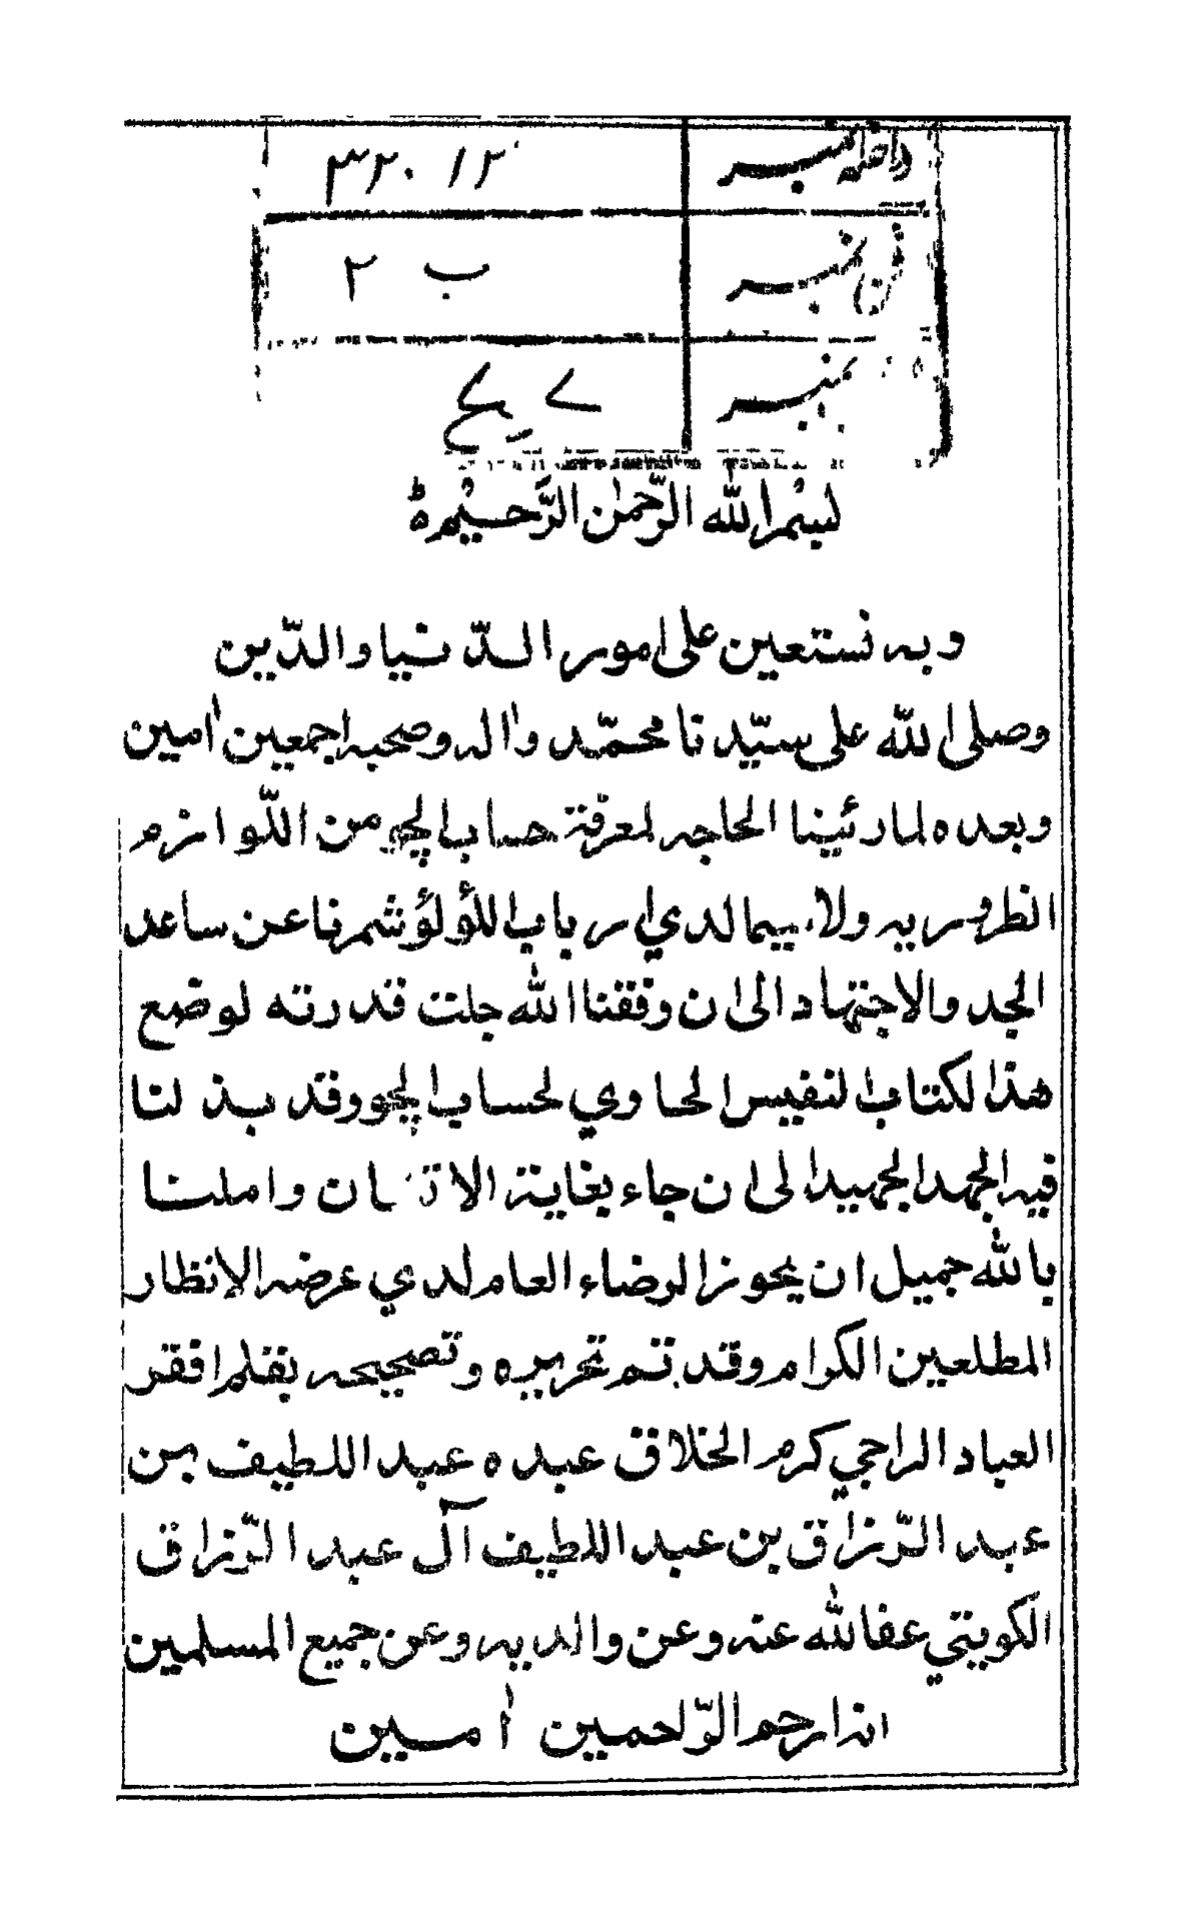 داخله نمبر ١٢ ٣٢٠
فن نمبر ب ٢
نمبر
بسم الله الرّحمٰن الرَّحیْم ہ
وبه نستعین على امور الدّنیا والدّین
وصلى الله على سیّدنا محمّد وٰاله وصحبه اجمعین اٰمین
وبعده لما رئینا الحاجه لمعرفة حساب الچو من اللّوازم
الظروریه ولا سیما لدي ارباب اللؤلؤ شمرنا عن ساعد
الجد والاجتهاد الى ان وفقنا الله جلت قدرته لوضع
هذا لكتاب النفیس الحاوي لحساب الچو وقد بذلنا
فیه الجهد الجهید الى ان جاء بغایة الاتقان واملنا
بالله جمیل ان یحوز الرضاء العام لدي عرضه الانظار
المطلعین الكرام وقد تم تحریره وتصحیحه بقلم افقر
العباد الراجي كرم الخلاق عبده عبد اللطیف بن
عبد الرّزاق بن عبد اللطیف آل عبد الرّزاق
الكویتي عفا لله عنه وعن والدیه وعن جمیع المسلمین
انه ارحم الرّاحمین اٰمین